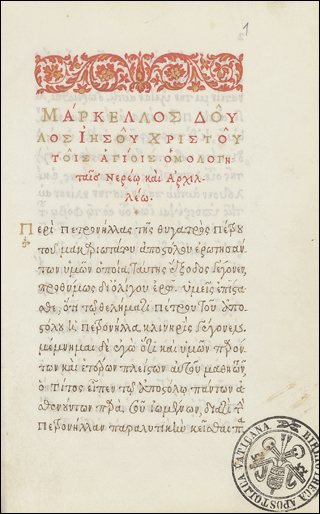 1
ΜΑΡΚΕΛΛΟΣ ΔΟΥ
ΛΟΣ ΙΗΣΟΥ ΧΡΙΣΤΟΥ
ΤΟΙΣ ΑΓΙΟΙΣ ΟΜΟΛΟΓΗ
ταῖς Νερέῳ καὶ Αρχιλ
λέῳ.
Περὶ Πετρονίλλας τῆς θυγατρὸς Πέτρου
τοῦ μακαριωτάτου ἀποστόλου ἐρωτησάν
των ὑμῶν ὁποία ταύτης ἔξοδος γέγονεν,
προθύμως δι' ὀλίγου ἐρῶ. ὑμεῖς ἐπίστα
σθε, ὅτι τῷ θελήματι Πέτρου τοῦ ἀπο
στόλου ἡ Πετρονίλλα κλινήρης γέγονε.
μέμνημαι δὲ ἐγὼ ὅτι καὶ ὑμῶν παρόν
των καὶ ἑτέρων πλείστων αὐτοῦ μαθητῶν,
ὁ Τίτος εἶπεν τῷ ἀποστόλῳ πάντων
ἀσθενούντων παρὰ σοῦ ἰωμένων, διατί τὴν
Πετρονίλλαν παραλυτικὴν κεῖσθαι
BIBLIOTHECA APOSTOLICA VATICANA